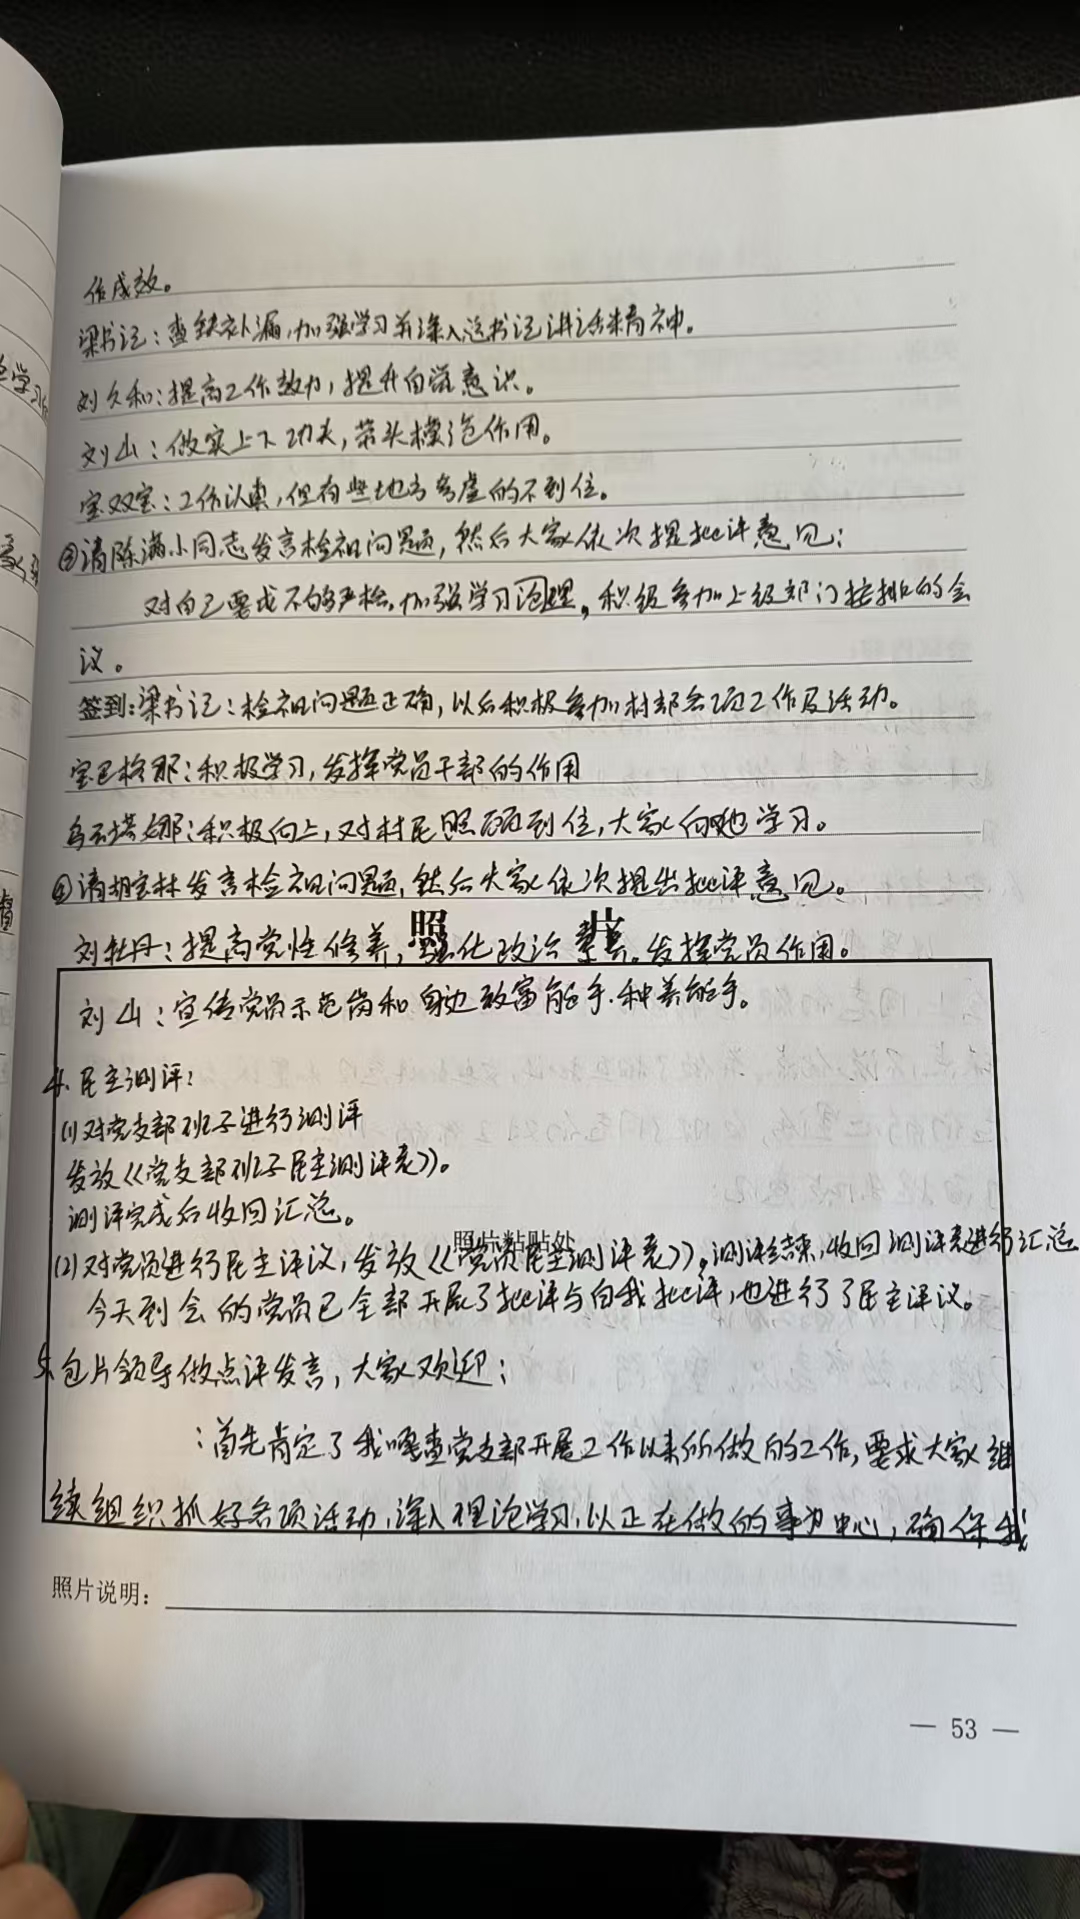 作成效。
梁书记：查缺补漏，加强学习并深入总书记讲话精神。
刘久和：提高工作效力，提升自觉意识。
刘山：做实上下功夫，带头模范作用。
宝双宝：工作认真，但有些地方考虑的不到位。
③请陈满小同志发言检视问题，然后大家依次提批评意见：
对自己要求不够严格，加强学习理，积极参加上级部门按排的会
议。
签到：梁书记：检视问题正确，以后积极参加村部各项工作及活动。
宝巴格那：积极学习，发挥党员干部的作用
乌云塔娜：积极向上，对村民照顾到位，大家向她学习。
④请胡宝林发言检视问题，然后大家依次提出批评意见。
照 片
刘牡丹：提高党性修养，强化政治素养。发挥党员作用。
刘山：宣传党员示范岗和身边致富能手.种养能手。
4.民主测评：
(1)对党支部班子进行测评
发放《党支部班子民主测评表》。
测评完成后收回汇总。
照片粘贴处
(2)对党员进行民主评议，发放《党员民主测评表》，测评结束，收回测评表进行汇总
今天到会的党员已全部开展了批评与自我批评，也进行了民主评议。
5.包片领导做点评发言，大家欢迎：
：首先肯定了我嘎查党支部开展工作以来所做的工作，要求大家继
续组织抓好各项活动，深入理论学习，以正在做的事为中心，确保我
照片说明：
— 53 —